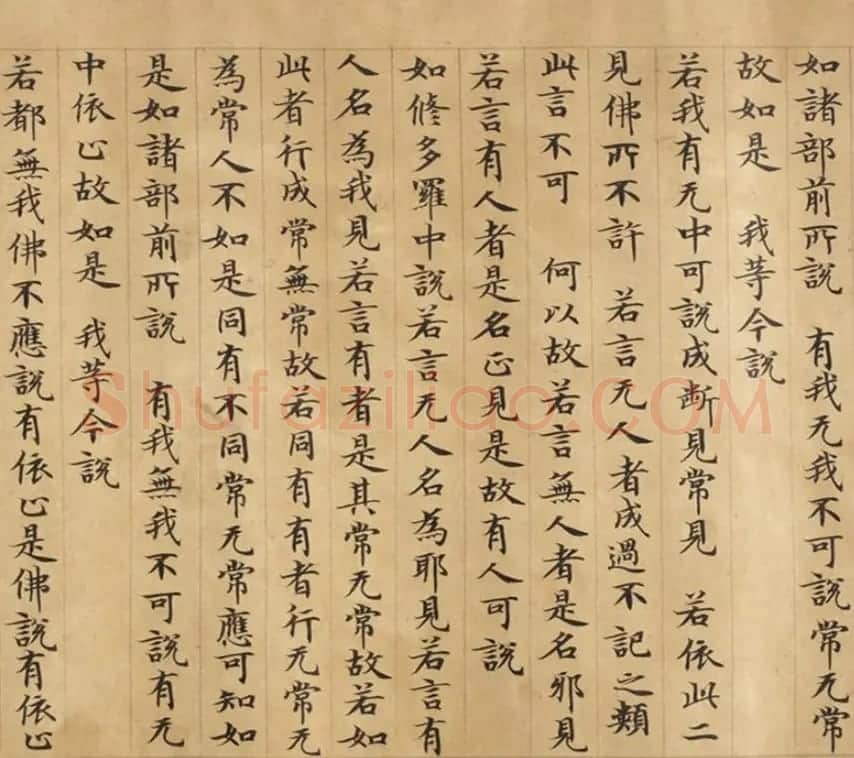 如諸部前所說　有我无我不可說常无常
故如是　我等今說
若我有无中可說成断見常見　若依此二
見佛所不許　若言无人者成過不記之類
此言不可　何以故若言無人者是名邪見
若言有人者是名正見是故有人可說
如修多羅中說若言无人名為耶見若言有
人名為我見若言有者是其常无常故若如
此者行成常無常故若同有有者行无常无
為常人不如是同有不同常无常應可知如
是如諸部前所說　有我無我不可說有无
中依止故如是　我等今說
若都無我佛不應說有依止是佛說有依止
Shufaziliao.COM